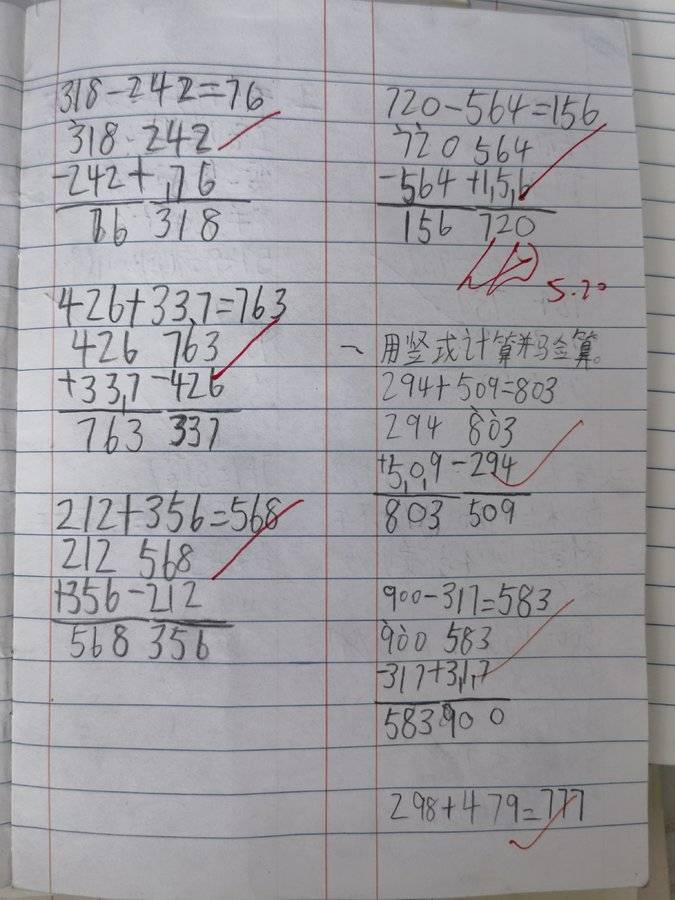 318-242=76
318 242
-242 +76
76 318
426+337=763
426 763
+337 -426
763 337
212+356=568
212 568
+356 -212
568 356
720-564=156
720 564
-564 +156
156 720
5.20
一 用竖式计算并马佥算。
294+509=803
294 803
+509 -294
803 509
900-317=583
900 583
-317 +317
583 900
298+479=777